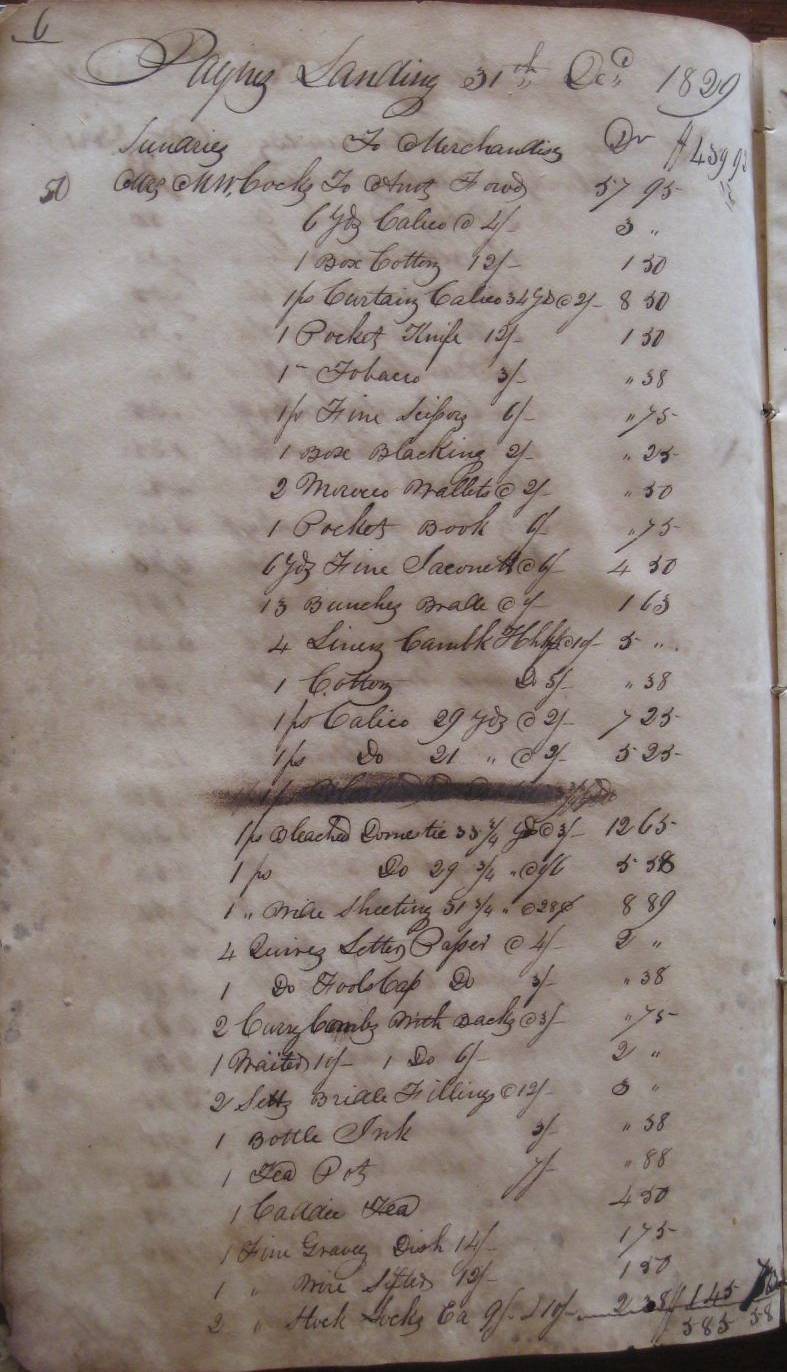 6
Paynes Landing 31st Decr 1829
Sundries To Merchandise Dr $ 439 93
50 Mrs M W. Cocks To Amt Forwd 57 95
6 Yds Calico @ 4/- 3 "
1 Box Cotton 12/- 1 50
1 ps Curtain Calico 34 Yds @ 2/- 8 50
1 Pocket Knife 12/- 1 50
1 " Tobacco 3/- " 38
1 pr Fine Scissors 6/- " 75
1 Box Blacking 2/- " 25
2 Morocco Wallets @ 2/- " 50
1 Pocket Book 6/- " 75
6 Yds Fine Jaconett @ 6/- 4 50
13 Bunches Brade @ 1/- 1 63
4 Linen Cambk Hhkfs @ 10/- 5 "
1 Cotton Do 3/- " 38
1 ps Calico 29 Yds @ 2/- 7 25
1 ps Do 21 " @ 2/- 5 25
1 ps Bleached Domestic 33 3/4 Yds @ 3/- 12 65
1 ps Do 29 3/4 " @ 1/6 5 58
1 " Wide Sheeting 31 3/4 " @ 28¢ 8 89
4 Quires Letter Paper @ 4/- 2 "
1 Do Fools Cap Do 3/- " 38
2 Curry Combs With Backs @ 3/- " 75
1 Waiter 10/- 1 Do 6/- 2 "
2 Setts Bridle Fillings @ 12/- 3 "
1 Bottle Ink 3/- " 38
1 Tea Pot 7/- " 88
1 Caddie Tea 4 50
1 Fine Gravey Dish 14/- 1 75
1 " Wire Sifter 12/- 1 50
2 " Stock Locks Ea 9/- & 10/- 2 38 $ 145
585 58